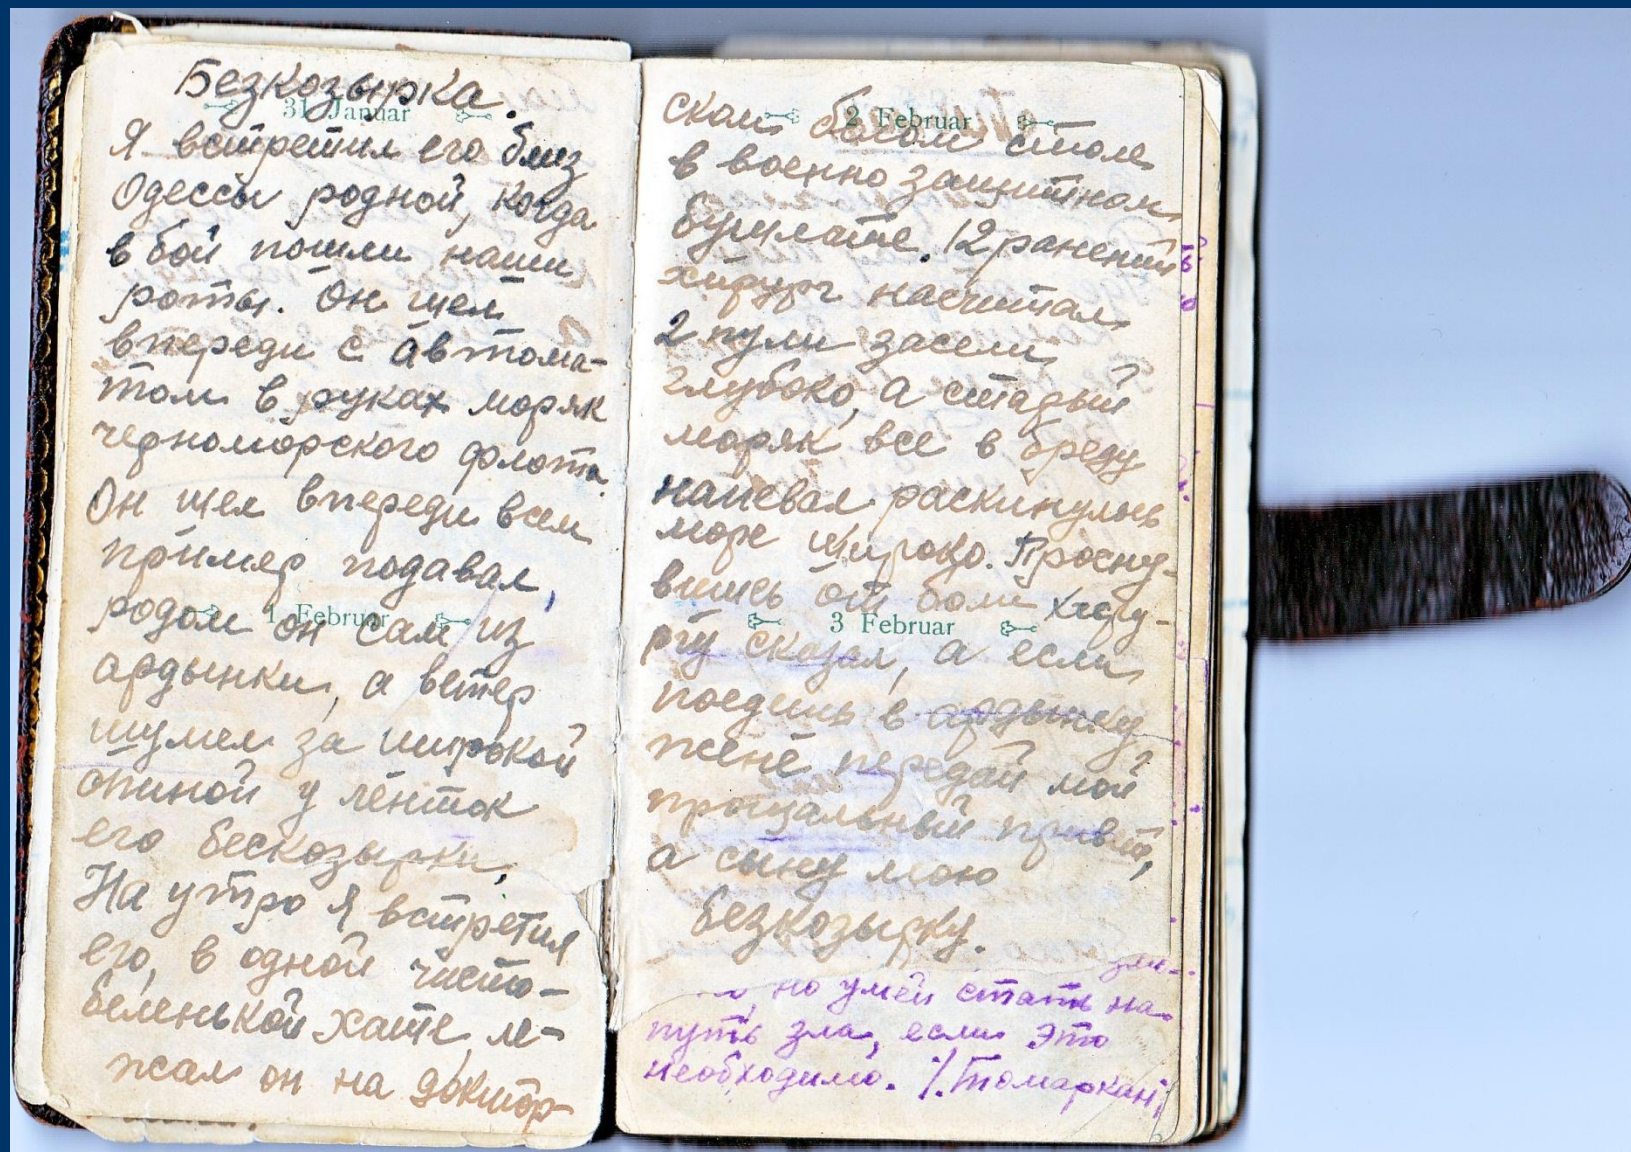 Безкозырка.
31 Januar
Я встретил его близ
Одессы родной, когда
в бой пошли наши
роты. Он шел
впереди с автома-
том в руках моряк
черноморского флота.
Он шел впереди всем
пример подавал,
1 Februar
родом он сам из
ардынки, а ветер
шумел за широкой
спиной у ленток
его бескозырки,
На утро я встретил
его, в одной чисто-
беленькой хате, ле-
жал он на доктор-
2 Februar
ском белом столе
в военно защитном
бушлате. 12 ранений
хирург насчитал
2 пули засели
глубоко, а старый
моряк все в бреду
напевал раскинулось
море широко. Просну-
вшись от боли хиру-
3 Februar
ргу сказал, а если
поедишь в ардынку
жене передай мой
прощальный привет,
а сыну мою
безкозырку.
но умей стать на
путь зла, если это
необходимо.